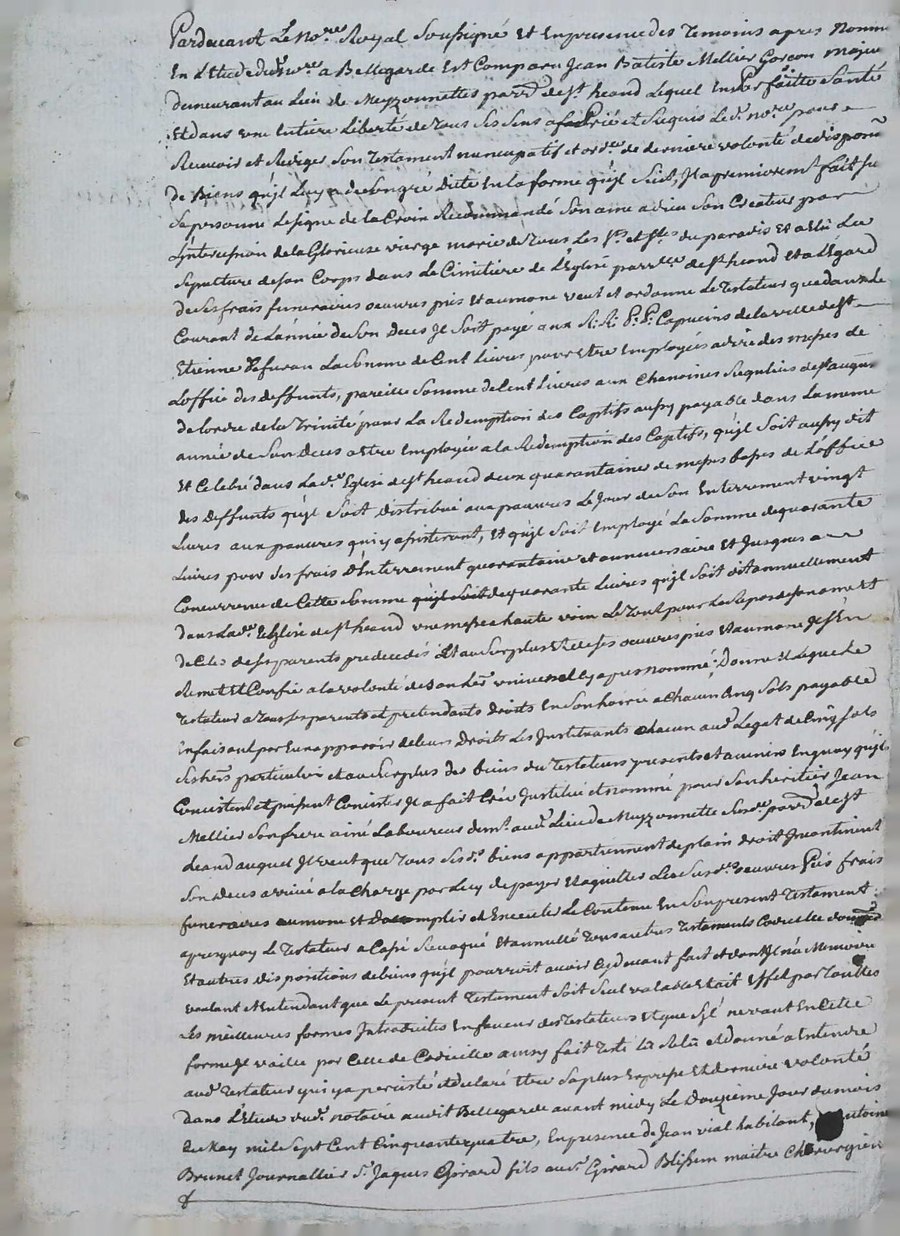 Pardevant Le No.re Royal Soussigné et En presence des Temoins apres Nomm
En L'Etude dud. No.re a Bellegarde Est Comparu Jean Batiste Mellier Garcon Majeur
demeurant au Lieu de Meyzonnettes parr.e de S.t heand Lequel En parfaitte Santé
Et dans une Entiere Liberté de Tous Ses Sens a prié et Requis Le d. No.re pour
Recevoir et Rediger Son Testament nuncupatif et ord.ce de derniere volonté de disposi.on
de Biens qu'il Luy a de Son gré Dicté En la forme qu'il Suit, Il a premierem.t fait Su
Sa personne Le Signe de la Croix Recommandé Son ame a dieu Son Createur par
L'intercession de La Glorieuse vierge marie de Tous Les S.ts et S.tes du paradis Et a Elû La
Sepulture de Son Corps dans Le Cimitière de L'Eglise parr.lle de S.t heand Et a L'Egard
de Ses frais funeraires oeuvres pies Et aumone veut Et ordonne Le Testateur que dans Le
Courant de L'année de Son Deces Il Soit payé aux R. R. P. P. Capucins de la ville de S.t
Etienne de furan La Somme de Cent Livres pour Etre Employée a dire des messes de
L'office des deffunts, pareille Somme de Cent Livres aux Chanoines Reguliers de S.t augus
de L'ordre de la Trinité pour La Redemption des Captifs aussy payable dans La meme
année de Son Deces a Etre Employée a la Redemption des Captifs, qu'il Soit aussy dit
Et Celebré dans La d. Eglise de S.t heand deux quarantaines de messes basses de L'office
des Deffunts qu'il Soit distribué aux pauvres Le Jour de Son Enterrement vingt
Livres aux pauvres qui y assisteront, Et qu'il Soit Employé La Somme de quarante
Livres pour Ses frais d'Enterrement quarantaine et anniversaire Et Jusques a
Concurrence de Cette Somme qu'il Soit de quarante Livres qu'il Soit dit annuellement
dans La d. Eglise de S.t heand une messe a haute voix Le Tout pour Le Repos de Son ame Et
de Celles de Ses parents predecedés Et au Surplus de Ses oeuvres pies Et aumone Il S'En
Remet Et Confie a la volonté de Son her. universel Cy apres nommé, Donne Et Legue Le
Testateur a Tous Ses parents et pretendants droits En Son hoirie a Chacun Cinq Sols payable
En faisant par Eux apparoir de Leurs Droits Les Instituants Chacun aud. Legat de Cinq Sols
Ses hers particuliers Et au Surplus des biens du Testateur presents et avenirs En quoy qu'ils
Consistent et puissent Consister Il a fait Créé Institué et nommé pour Son heritier Jean
Mellier Son frere ainé Laboureur dem.t aud. Lieu de Meyzonnette Susd. parr.e de S.t
heand auquel Il veut que Tous Ses d. biens appartiennent de plain droit Incontinent
Son Deces arrivé a la Charge par Luy de payer Et aquitter Les Susd. oeuvres Pies frais
funeraires aumone Et Daccomplir et Executer Le Contenu En Son present Testament
apres quoy Le Testateur a Cassé Revoqué Et annullé Tous autres Testaments Codicilles
Et autres dispositions de biens qu'il pourroit avoir Cy devant fait et dont Il n'a Memoire
voulant Et Entendant que Le present Testament Soit Seul valable Et ait Effet par Touttes
Les meilleures formes Introduites En faveur des Testateurs Et que S'il ne vaut En Cette
forme Il vaille par Celle de Codicille ainsy fait Testé Lû Relû Et donné a Entendre
aud. Testateur qui y a persisté et declaré Etre Sa plus Expresse Et derniere volonté
dans L'Etude dud. notaire audit Bellegarde avant midy Le Douzieme Jour du mois
De May mil Sept Cent Cinquante quatre, En presence de Jean vial habitant, antoine
Brunet Journallier S.r Jaques Girard fils au S.r Girard Maitre Chirurgien